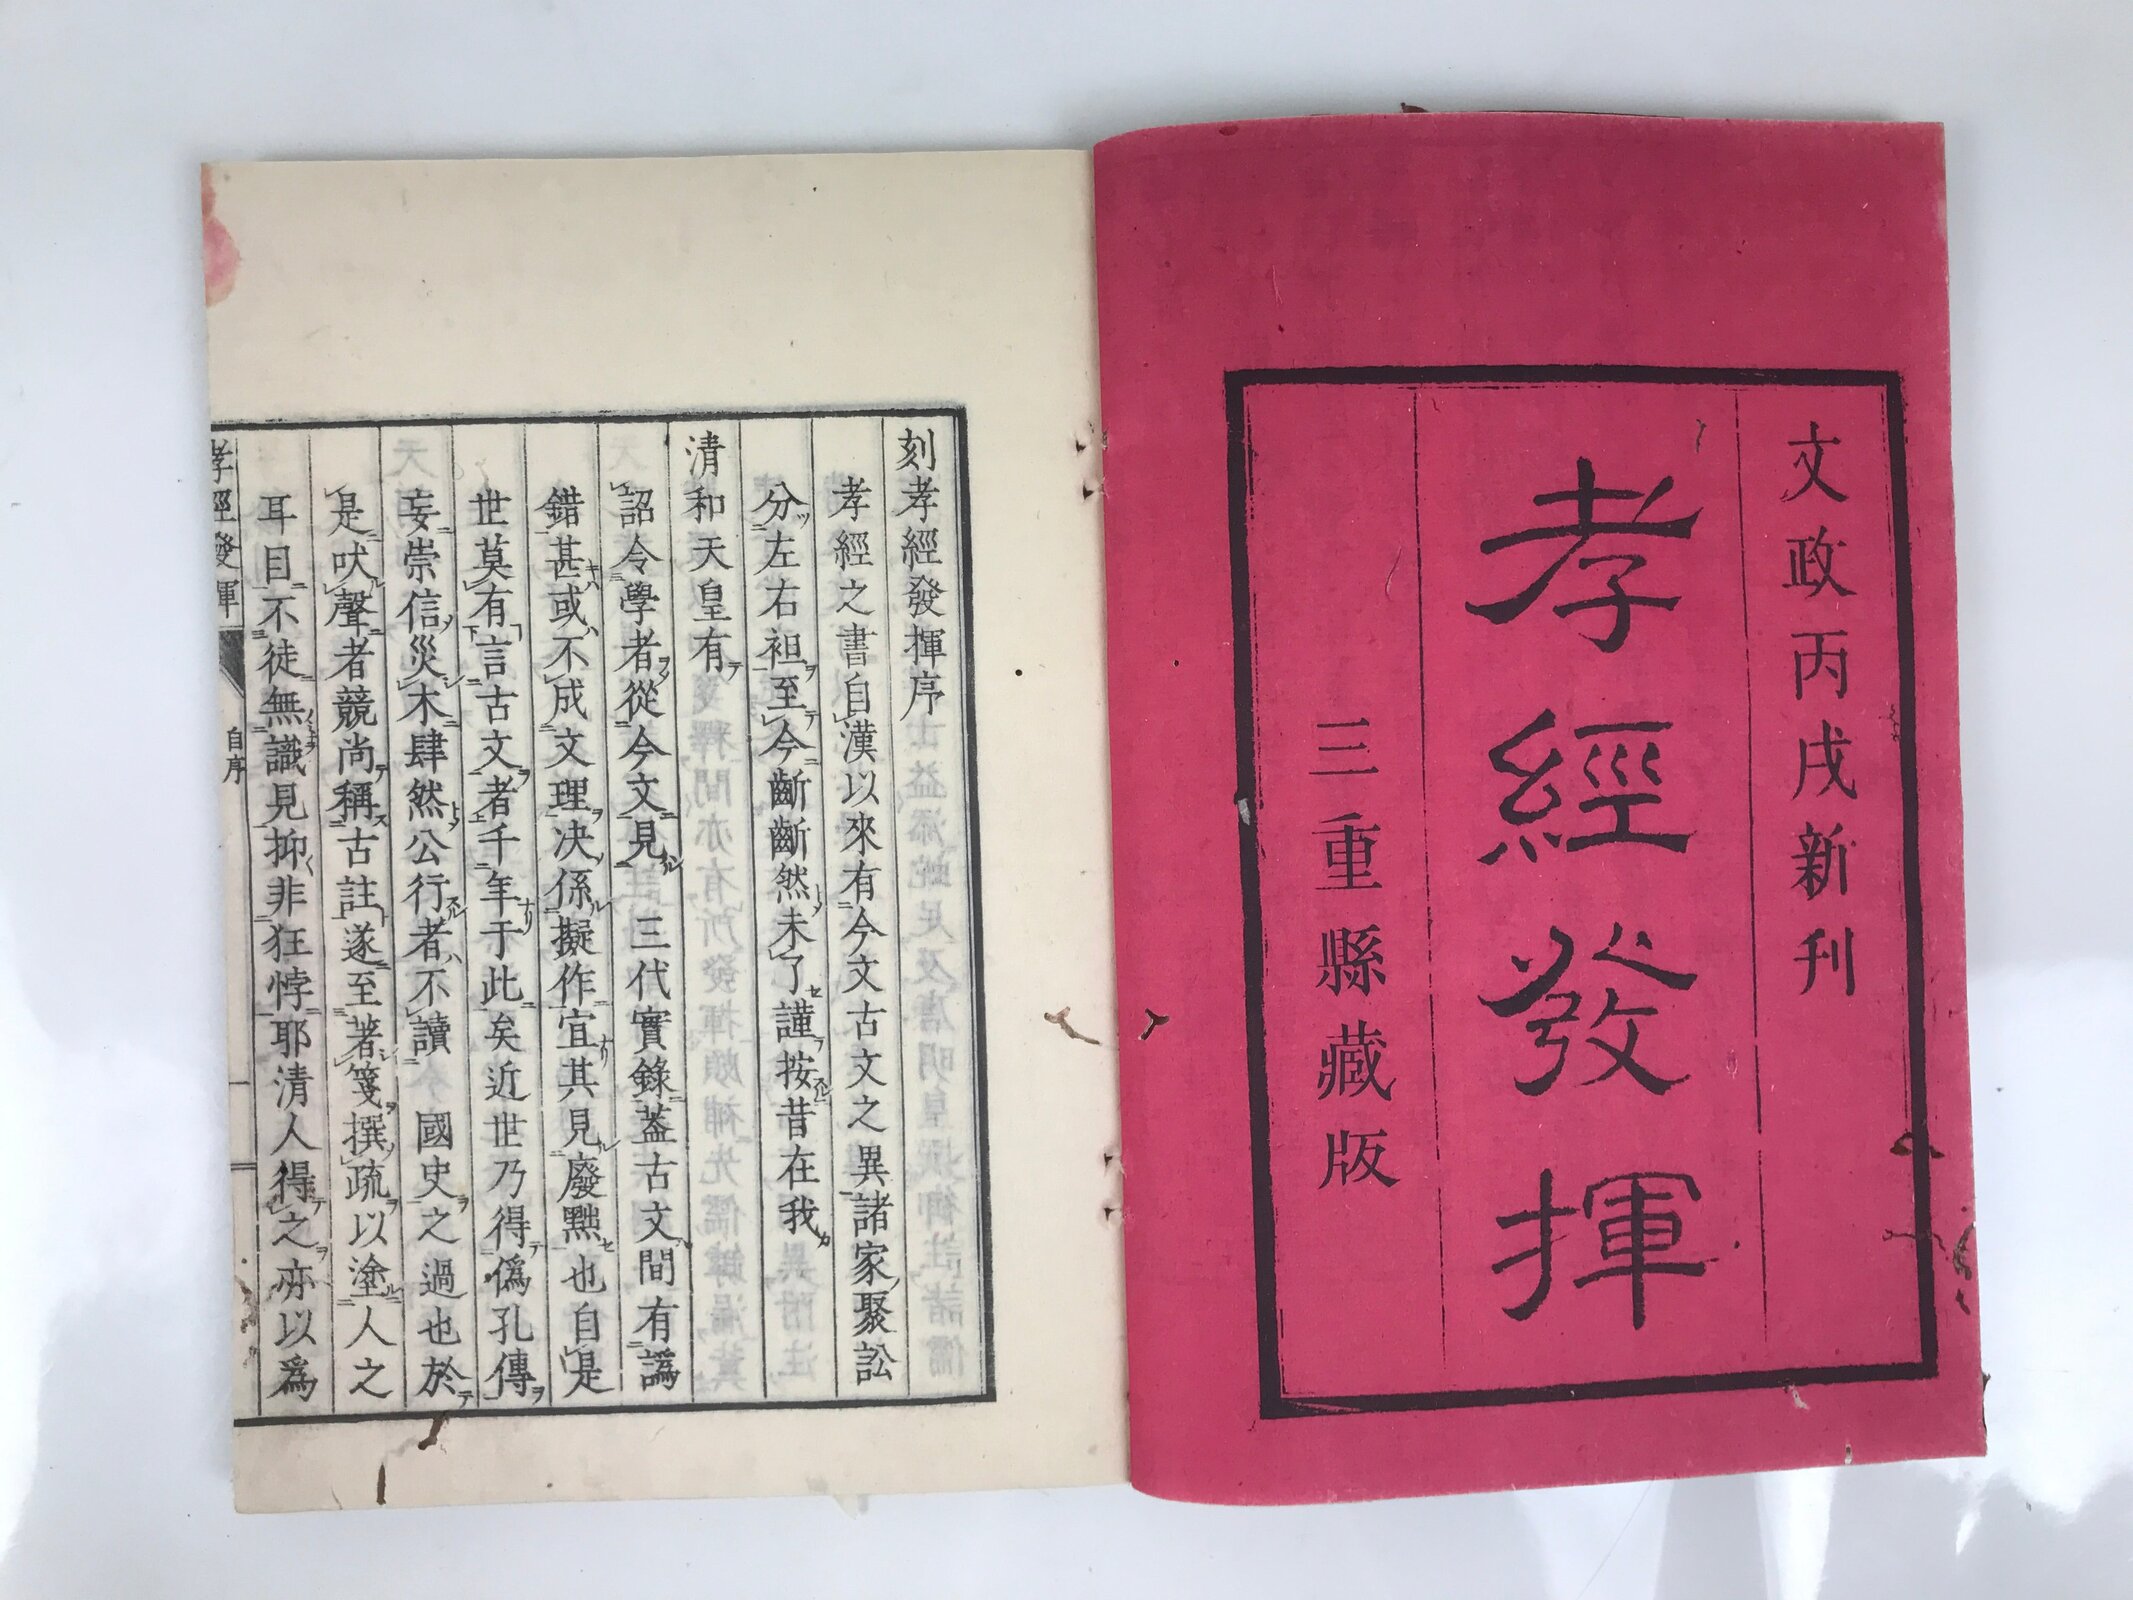 文政丙戌新刊
孝經發揮
三重縣藏版
刻孝經發揮序
孝經之書自漢以來有今文古文之異諸家聚訟
分左右袒至今齗齗然未了謹按昔在我
清和天皇有
詔令學者從今文見三代實錄蓋古文間有譌
錯甚或不成文理決係擬作宜其見廢黜也自是
世莫有言古文者千年于此矣近世乃得僞孔傳
妄崇信災木肆然公行者不讀國史之過也於
是吠聲者競尚稱古註遂至著箋撰疏以塗人之
耳目不徒無識見抑非狂悖耶清人得之亦以爲
孝經發揮
自序